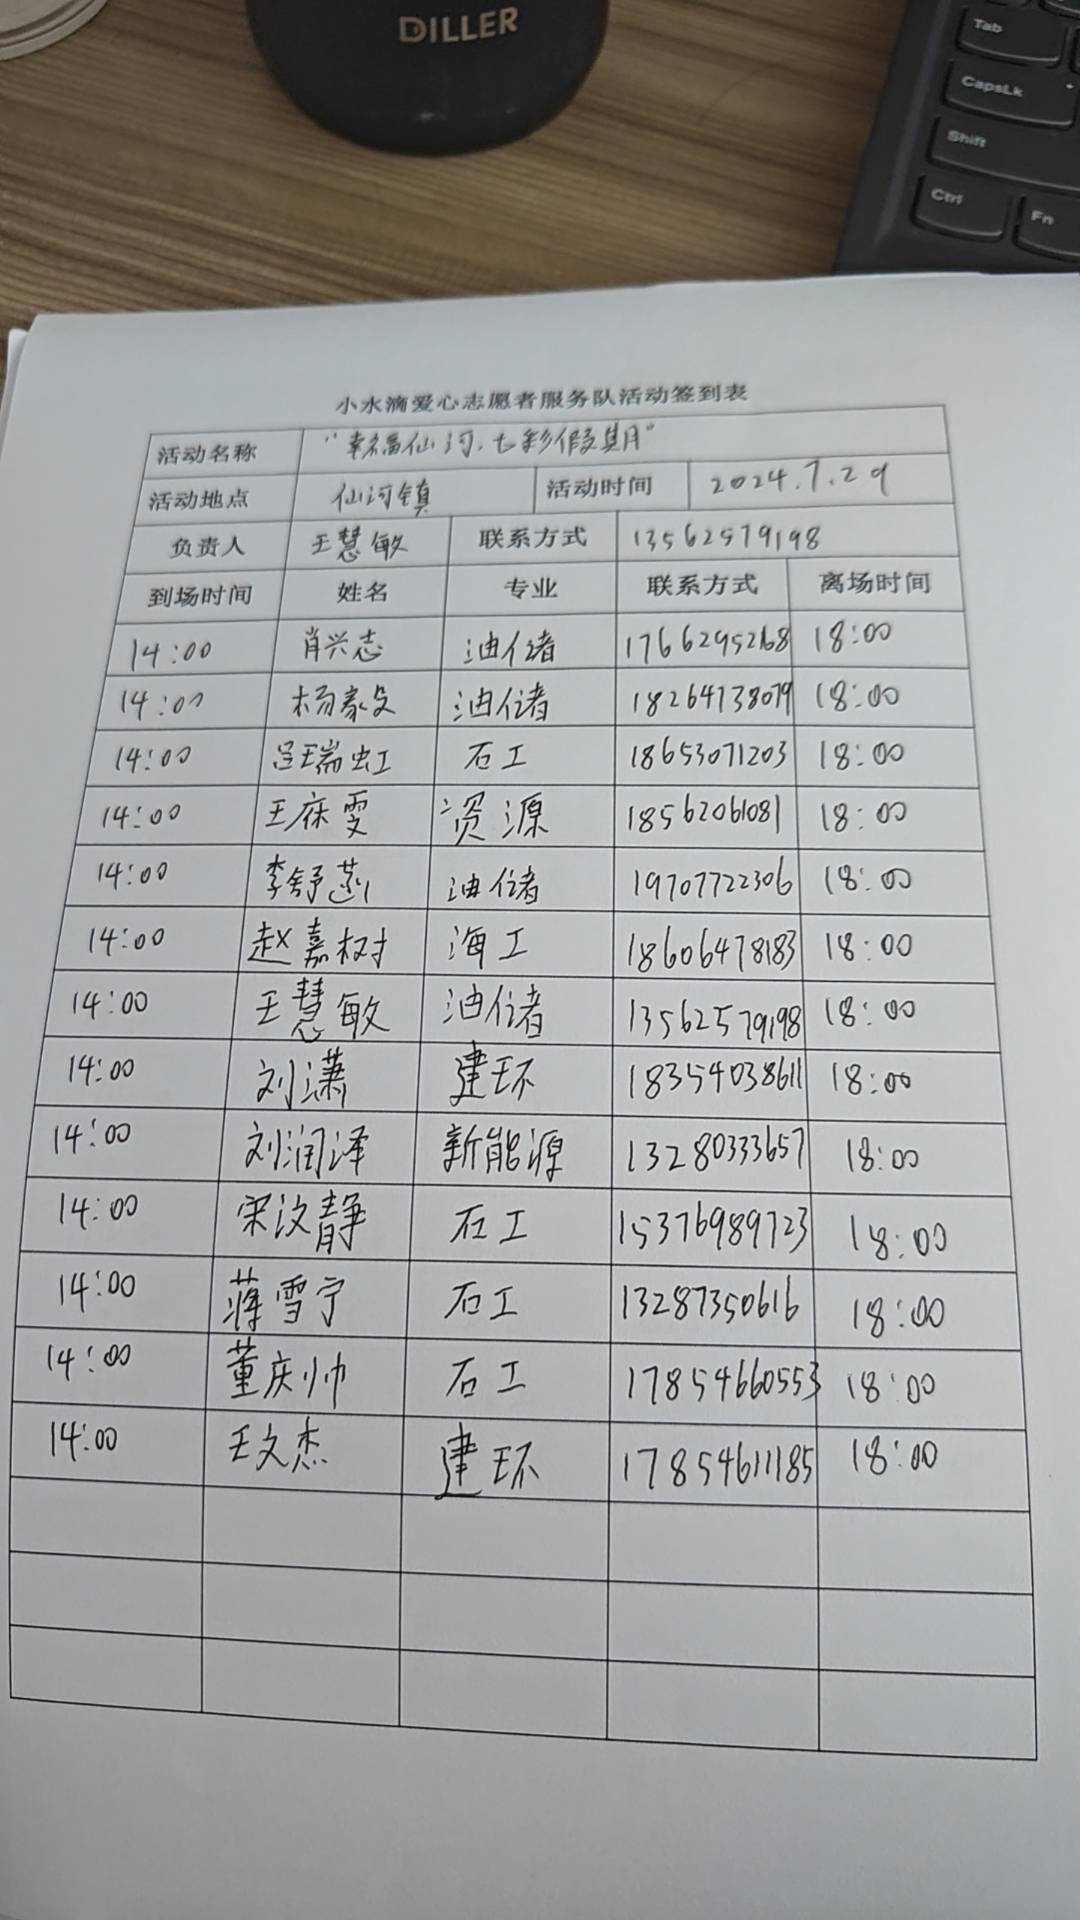 DILLER
Tab
CapsLk
Shift
Ctrl
Fn
小水滴爱心志愿者服务队活动签到表
活动名称 "幸福仙河,七彩假期"
活动地点 仙河镇 活动时间 2024.7.29
负责人 王慧敏 联系方式 13562579198
到场时间 姓名 专业 联系方式 离场时间
14:00 肖兴志 油储 17662952168 18:00
14:00 杨豪 油储 18264738079 18:00
14:00 吕瑞虹 石工 18653071203 18:00
14:00 王庥雯 资源 18562061081 18:00
14:00 李舒菡 油储 19707722306 18:00
14:00 赵嘉树 海工 18606478183 18:00
14:00 王慧敏 油储 13562579198 18:00
14:00 刘潇 建环 18354038611 18:00
14:00 刘润泽 新能源 13280333657 18:00
14:00 宋汶静 石工 15376989723 18:00
14:00 蒋雪宁 石工 13287350616 18:00
14:00 董庆帅 石工 17854660553 18:00
14:00 王文杰 建环 17854611185 18:00